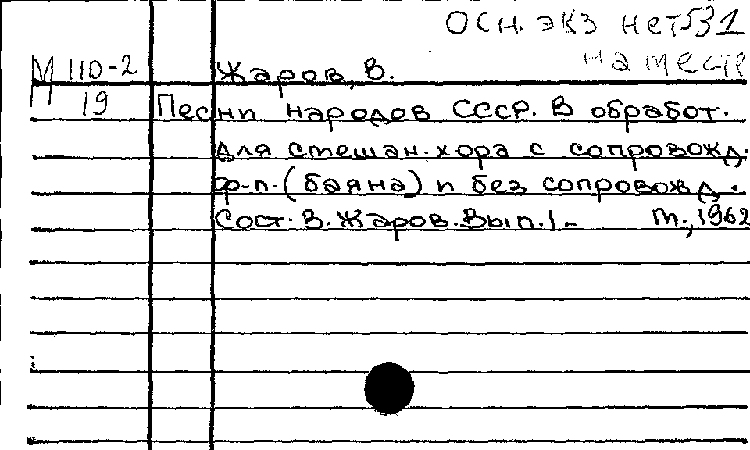 ОСН. ЭКЗ НЕТ 531
на месте
М 110-2 Жаров, В.
19 Песни народов СССР. В обработ.
для смешан. хора с сопровожд.
ф-п. (баяна) и без сопровожд.
Сост. В. Жаров. Вып. 1- М., 1962